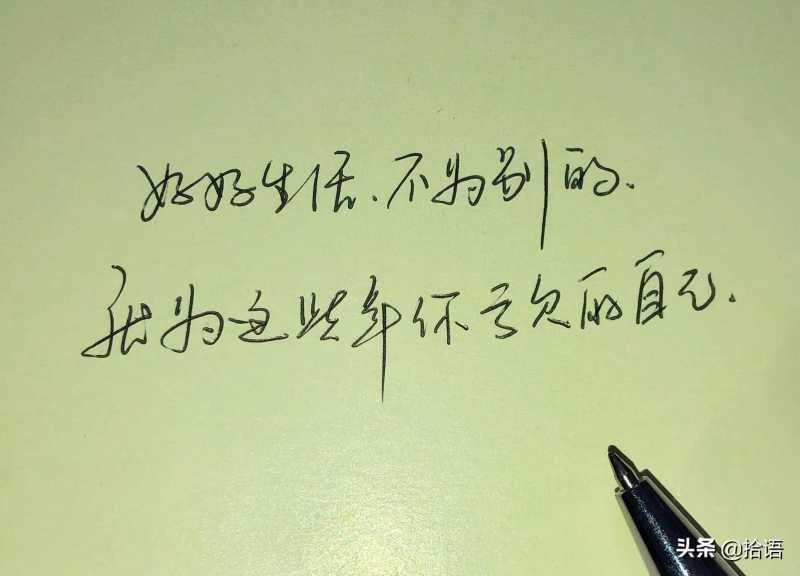 好好生活、不为别的.
就为这些年你亏欠的自己.
头条 @拾语